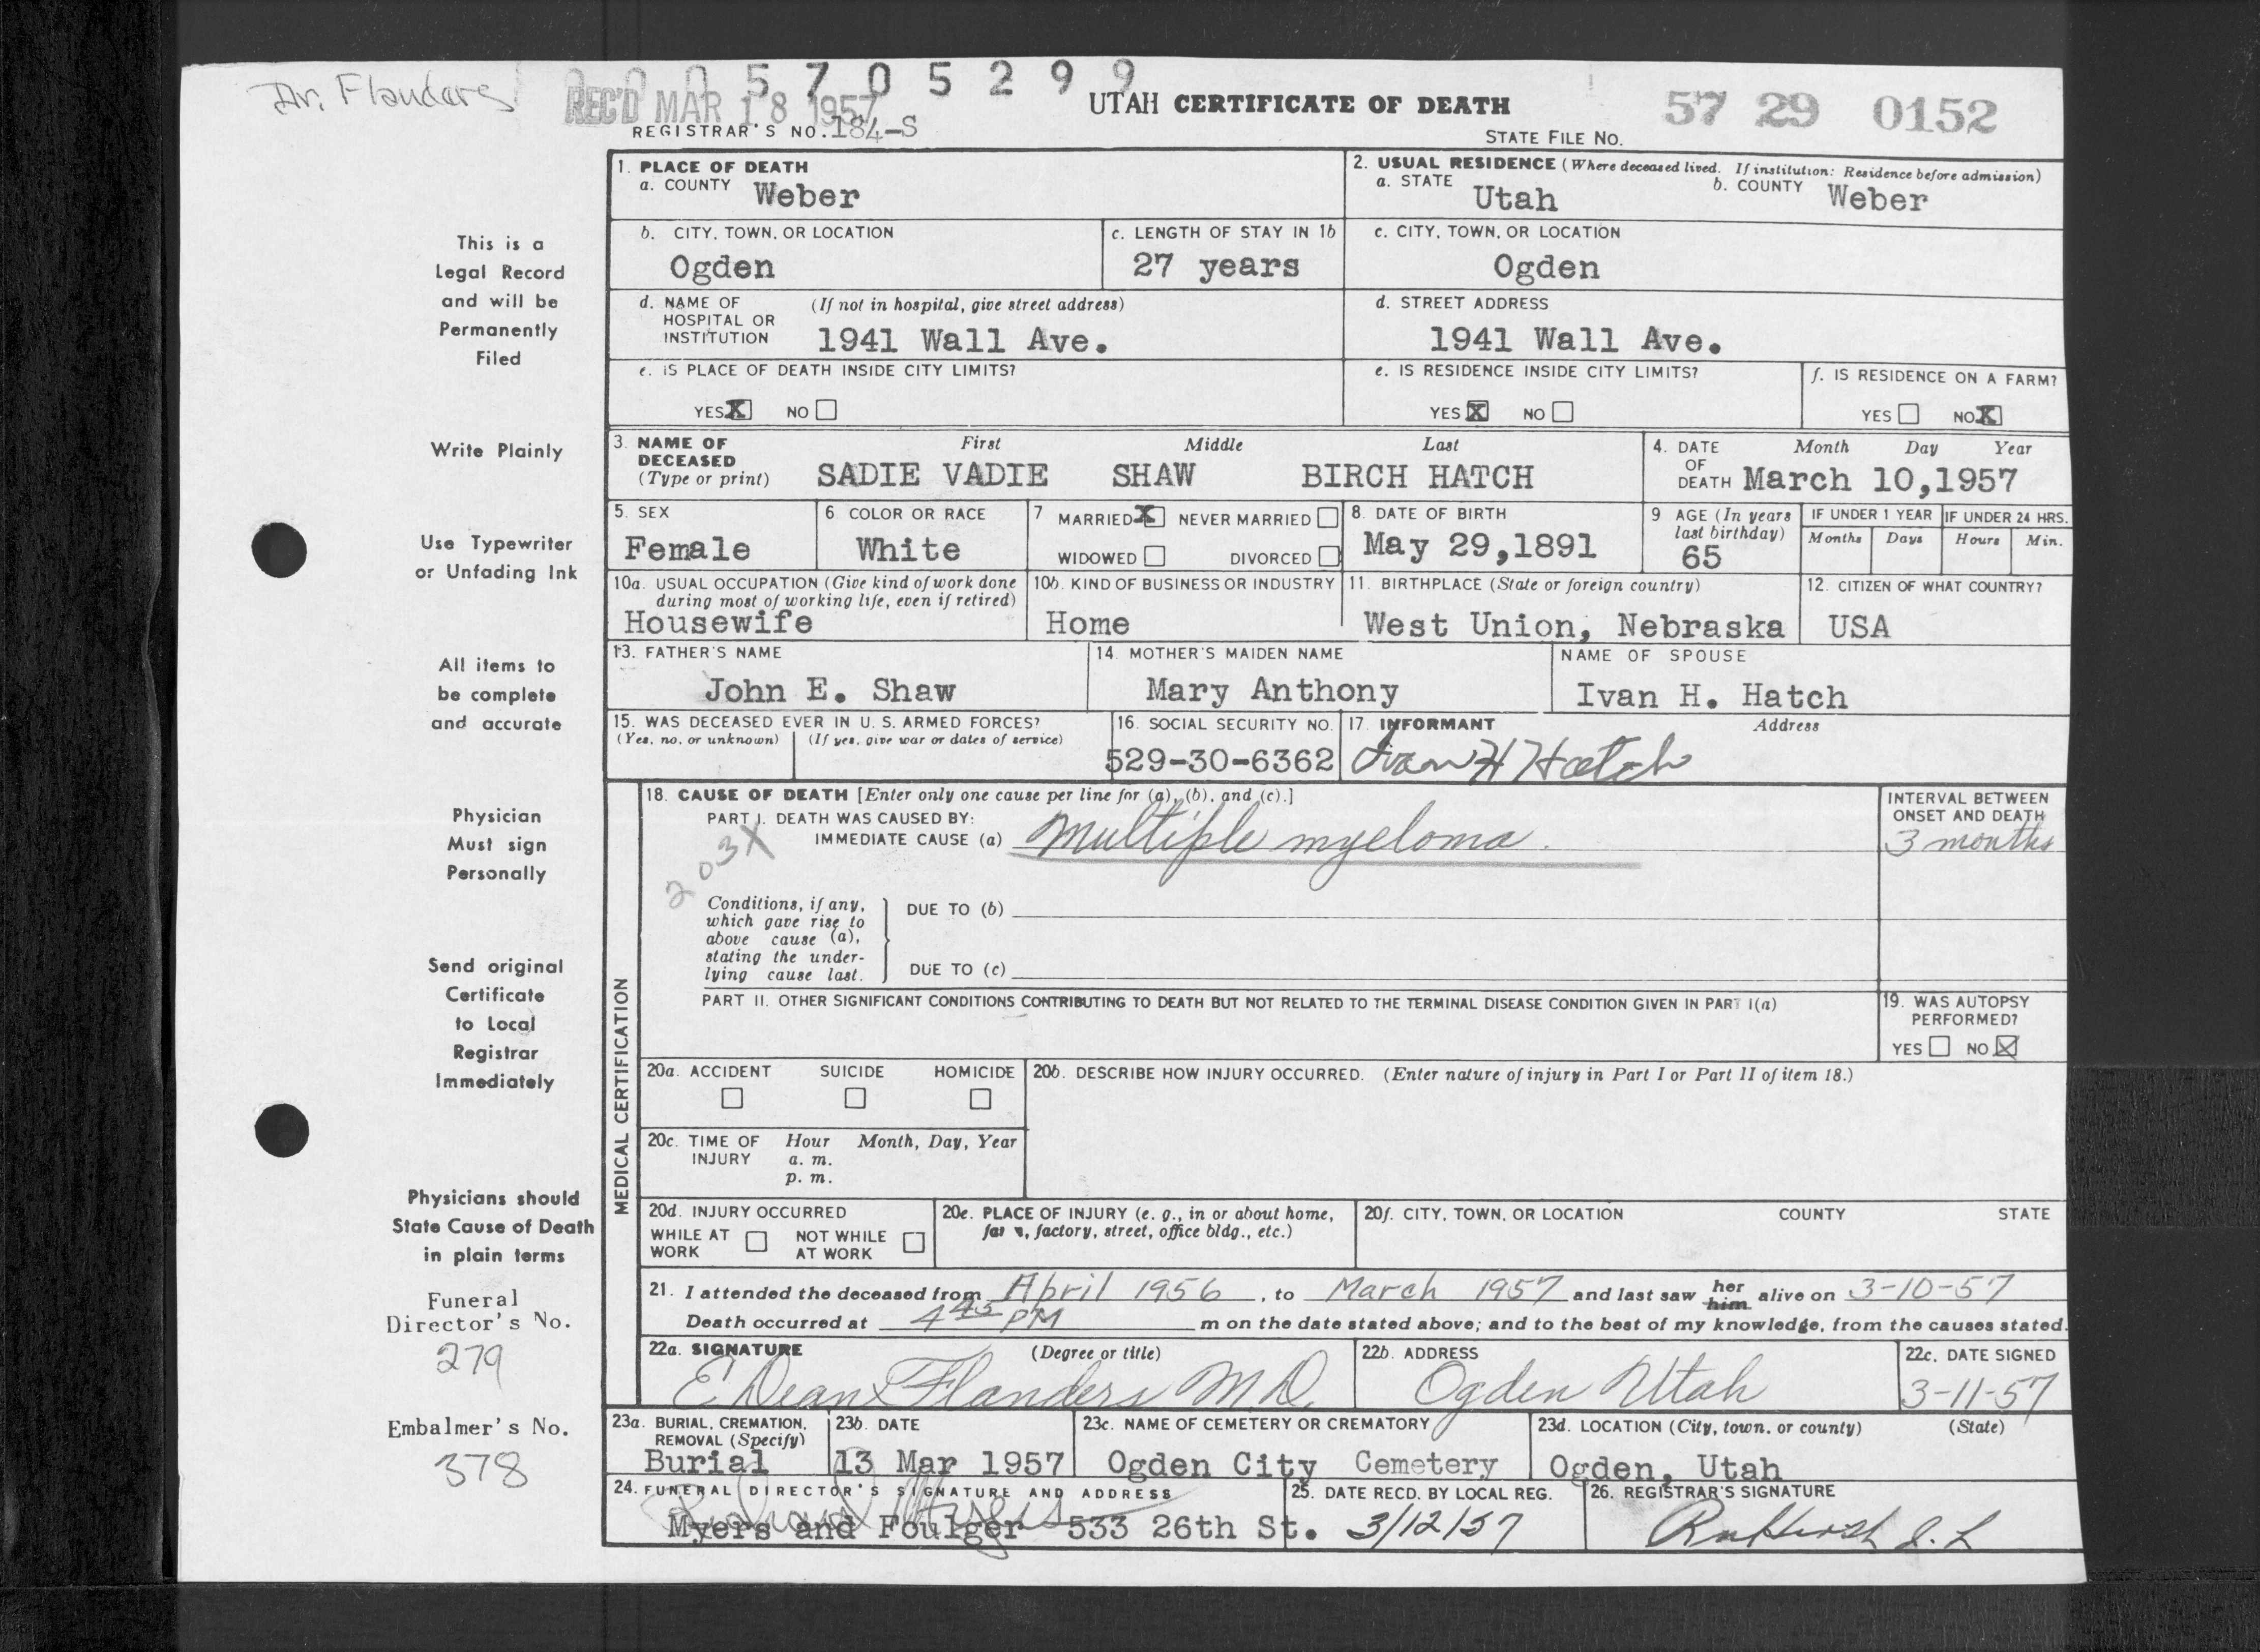 Dr. Flanders
0 0 0 5 7 0 5 2 9 9
REC'D MAR 18 1957
REGISTRAR'S NO. 184-S
UTAH CERTIFICATE OF DEATH
STATE FILE No. 57 29 0152
This is a
Legal Record
and will be
Permanently
Filed
Write Plainly
Use Typewriter
or Unfading Ink
All items to
be complete
and accurate
Physician
Must sign
Personally
Send original
Certificate
to Local
Registrar
Immediately
Physicians should
State Cause of Death
in plain terms
Funeral
Director's No.
279
Embalmer's No.
378
1. PLACE OF DEATH
a. COUNTY Weber
2. USUAL RESIDENCE (Where deceased lived. If institution: Residence before admission)
a. STATE Utah b. COUNTY Weber
b. CITY, TOWN, OR LOCATION Ogden
c. LENGTH OF STAY IN 1b 27 years
c. CITY, TOWN, OR LOCATION Ogden
d. NAME OF HOSPITAL OR INSTITUTION (If not in hospital, give street address)
1941 Wall Ave.
d. STREET ADDRESS
1941 Wall Ave.
e. IS PLACE OF DEATH INSIDE CITY LIMITS?
YES X NO
e. IS RESIDENCE INSIDE CITY LIMITS?
YES X NO
f. IS RESIDENCE ON A FARM?
YES NO X
3. NAME OF DECEASED (Type or print) First Middle Last
SADIE VADIE SHAW BIRCH HATCH
4. DATE OF DEATH Month Day Year
March 10,1957
5. SEX Female
6 COLOR OR RACE White
7 MARRIED X NEVER MARRIED
WIDOWED DIVORCED
8. DATE OF BIRTH May 29,1891
9 AGE (In years last birthday) 65
IF UNDER 1 YEAR Months Days
IF UNDER 24 HRS. Hours Min.
10a. USUAL OCCUPATION (Give kind of work done during most of working life, even if retired)
Housewife
10b. KIND OF BUSINESS OR INDUSTRY
Home
11. BIRTHPLACE (State or foreign country)
West Union, Nebraska
12. CITIZEN OF WHAT COUNTRY?
USA
13. FATHER'S NAME
John E. Shaw
14. MOTHER'S MAIDEN NAME
Mary Anthony
NAME OF SPOUSE
Ivan H. Hatch
15. WAS DECEASED EVER IN U. S. ARMED FORCES?
(Yes, no, or unknown) (If yes, give war or dates of service)
16. SOCIAL SECURITY NO.
529-30-6362
17. INFORMANT Address
Ivan H Hatch
MEDICAL CERTIFICATION
18. CAUSE OF DEATH [Enter only one cause per line for (a), (b), and (c).]
PART I. DEATH WAS CAUSED BY:
IMMEDIATE CAUSE (a) Multiple myeloma.
203X
INTERVAL BETWEEN
ONSET AND DEATH
3 months
Conditions, if any,
which gave rise to
above cause (a),
stating the under-
lying cause last.
DUE TO (b)
DUE TO (c)
PART II. OTHER SIGNIFICANT CONDITIONS CONTRIBUTING TO DEATH BUT NOT RELATED TO THE TERMINAL DISEASE CONDITION GIVEN IN PART I(a)
19. WAS AUTOPSY
PERFORMED?
YES NO X
20a. ACCIDENT SUICIDE HOMICIDE
20b. DESCRIBE HOW INJURY OCCURRED. (Enter nature of injury in Part I or Part II of item 18.)
20c. TIME OF INJURY Hour Month, Day, Year
a. m.
p. m.
20d. INJURY OCCURRED
WHILE AT WORK NOT WHILE AT WORK
20e. PLACE OF INJURY (e. g., in or about home, farm, factory, street, office bldg., etc.)
20f. CITY, TOWN, OR LOCATION COUNTY STATE
21. I attended the deceased from April 1956, to March 1957 and last saw her him alive on 3-10-57
Death occurred at 4 45 PM m on the date stated above; and to the best of my knowledge, from the causes stated.
22a. SIGNATURE (Degree or title)
E Dean Flanders M.D.
22b. ADDRESS
Ogden Utah
22c. DATE SIGNED
3-11-57
23a. BURIAL, CREMATION, REMOVAL (Specify)
Burial
23b. DATE
13 Mar 1957
23c. NAME OF CEMETERY OR CREMATORY
Ogden City Cemetery
23d. LOCATION (City, town, or county) (State)
Ogden, Utah
24. FUNERAL DIRECTOR'S SIGNATURE AND ADDRESS
Myers and Foulger 533 26th St.
25. DATE RECD. BY LOCAL REG.
3/12/57
26. REGISTRAR'S SIGNATURE